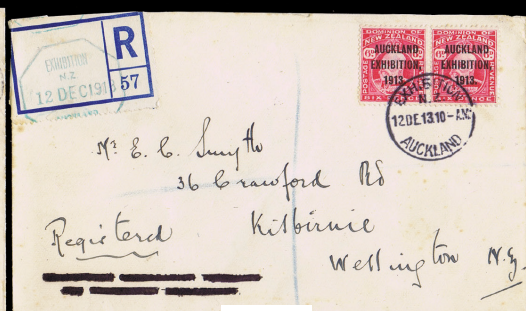 R
EXHIBITION
N.Z
12 DEC 191
57
DOMINION OF NEW ZEALAND
AUCKLAND
EXHIBITION,
1913.
SIX PENCE
DOMINION OF NEW ZEALAND
AUCKLAND
EXHIBITION,
1913.
EXHIBITION
N.Z.
12 DE.13.10-AM
AUCKLAND
Mr E. C. Smyth
36 Crawford Rd
Kilbirnie
Registered
Wellington N.Z.